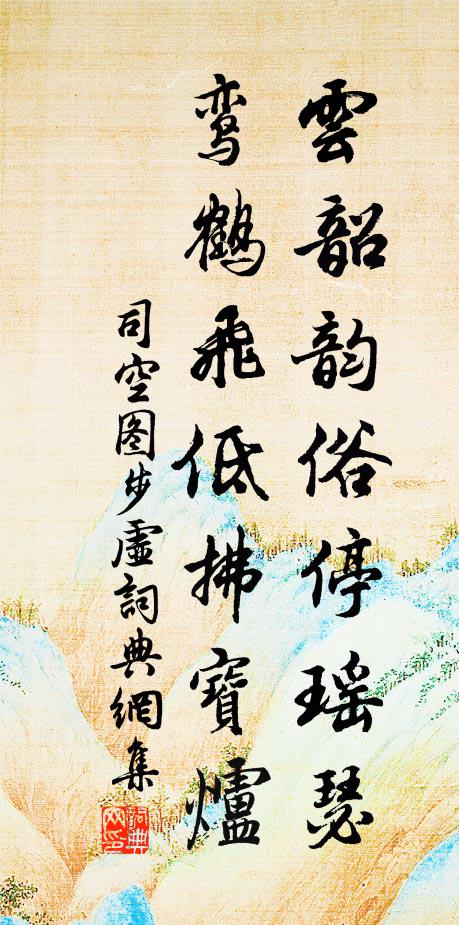 雲韶韵俗停瑶瑟
鸾鶴飛低拂寶爐
司空图步虛詞典網集
詞典网印